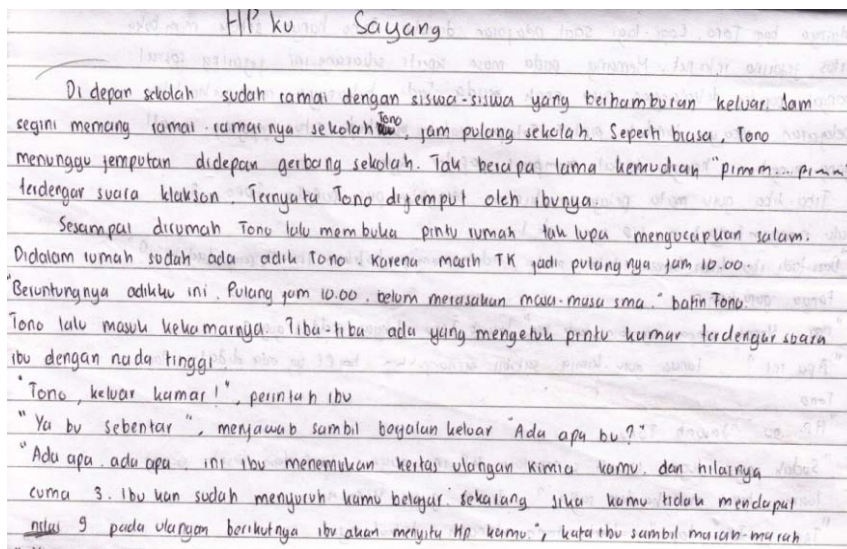 HP ku Sayang
Di depan sekolah sudah ramai dengan siswa-siswa yang berhamburan keluar. Jam
segini memang ramai-ramainya sekolah Tono, jam pulang sekolah. Seperti biasa, Tono
menunggu jemputan didepan gerbang sekolah. Tak berapa lama kemudian "pimm... pimm"
terdengar suara klakson. Ternyata Tono dijemput oleh ibunya.
Sesampai dirumah Tono lalu membuka pintu rumah tak lupa mengucapkan salam.
Didalam rumah sudah ada adik Tono. Karena masih TK jadi pulangnya jam 10.00
"Beruntungnya adikku ini. Pulang jam 10.00. belum merasakan masa-masa sma." batin Tono.
Tono lalu masuk kekamarnya. Tiba-tiba ada yang mengetuk pintu kamar terdengar suara
ibu dengan nada tinggi.
"Tono, keluar kamar!", perintah ibu
"Ya bu sebentar", menjawab sambil berjalan keluar "Ada apa bu?"
"Ada apa. ada apa, ini ibu menemukan kertas ulangan kimia kamu. dan nilainya
cuma 3. ibu kan sudah menyuruh kamu belajar sekarang jika kamu tidak mendapat
nilai 9 pada ulangan berikutnya ibu akan menyita Hp kamu", kata ibu sambil marah-marah